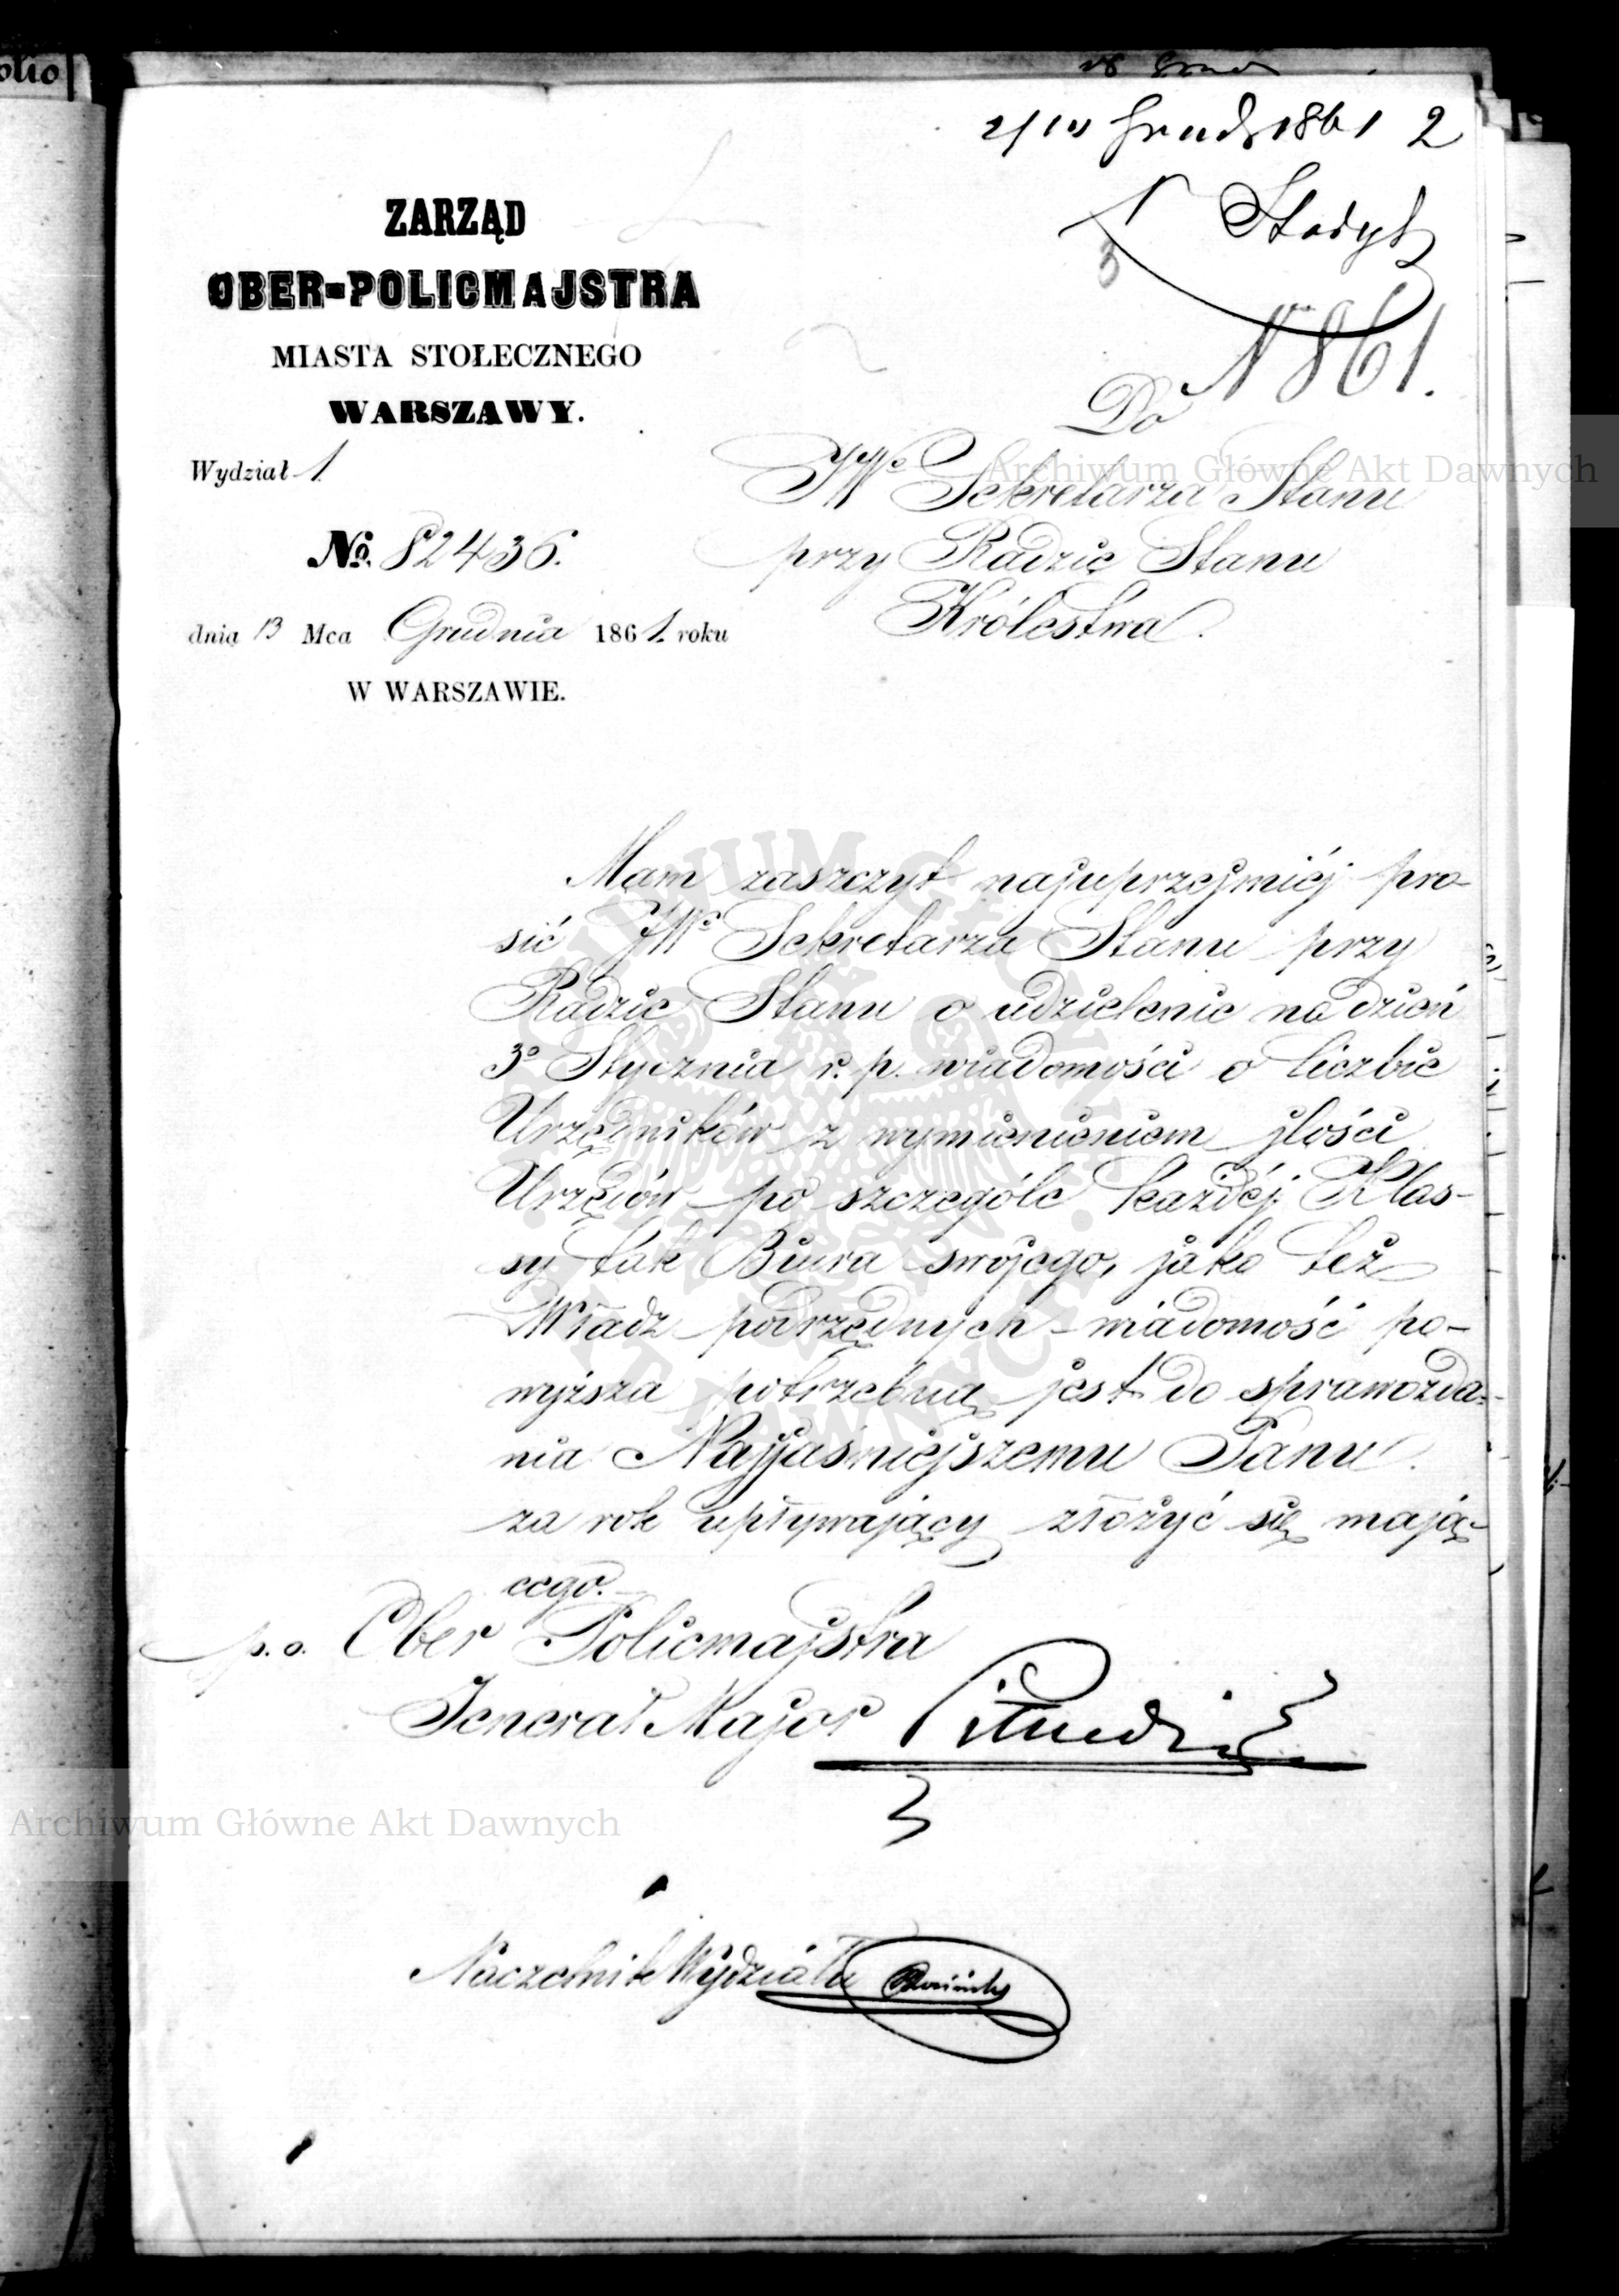 Grudz 1861 2
N 861.
ZARZĄD
OBER-POLICMAJSTRA
MIASTA STOŁECZNEGO
WARSZAWY.
Wydział 1
No. 82436.
dnia 13 Mca Grudnia 1861. roku
W WARSZAWIE.
Do
JWo Sekretarza Stanu
przy Radzie Stanu
Królestwa.
Mam zaszczyt najuprzejmiéj pro-
sić JWo Sekretarza Stanu przy
Radzie Stanu o udzielenie na dzień
3o Stycznia r. p. wiadomości o liczbie
Urzędników z wymienieniem jlości
Urzędów po szczególe każdéj Klas-
sy tak Biura swojego, jako też
Władz podrzędnych - wiadomość po-
wyższa potrzebną jest do sprawozda-
nia Najjaśniejszemu Panu
za rok upływający złożyć się mają-
cego.
p. o. Ober Policmajstra
Jenerał Major
Naczelnik Wydziału
Archiwum Główne Akt Dawnych
Archiwum Główne Akt Dawnych